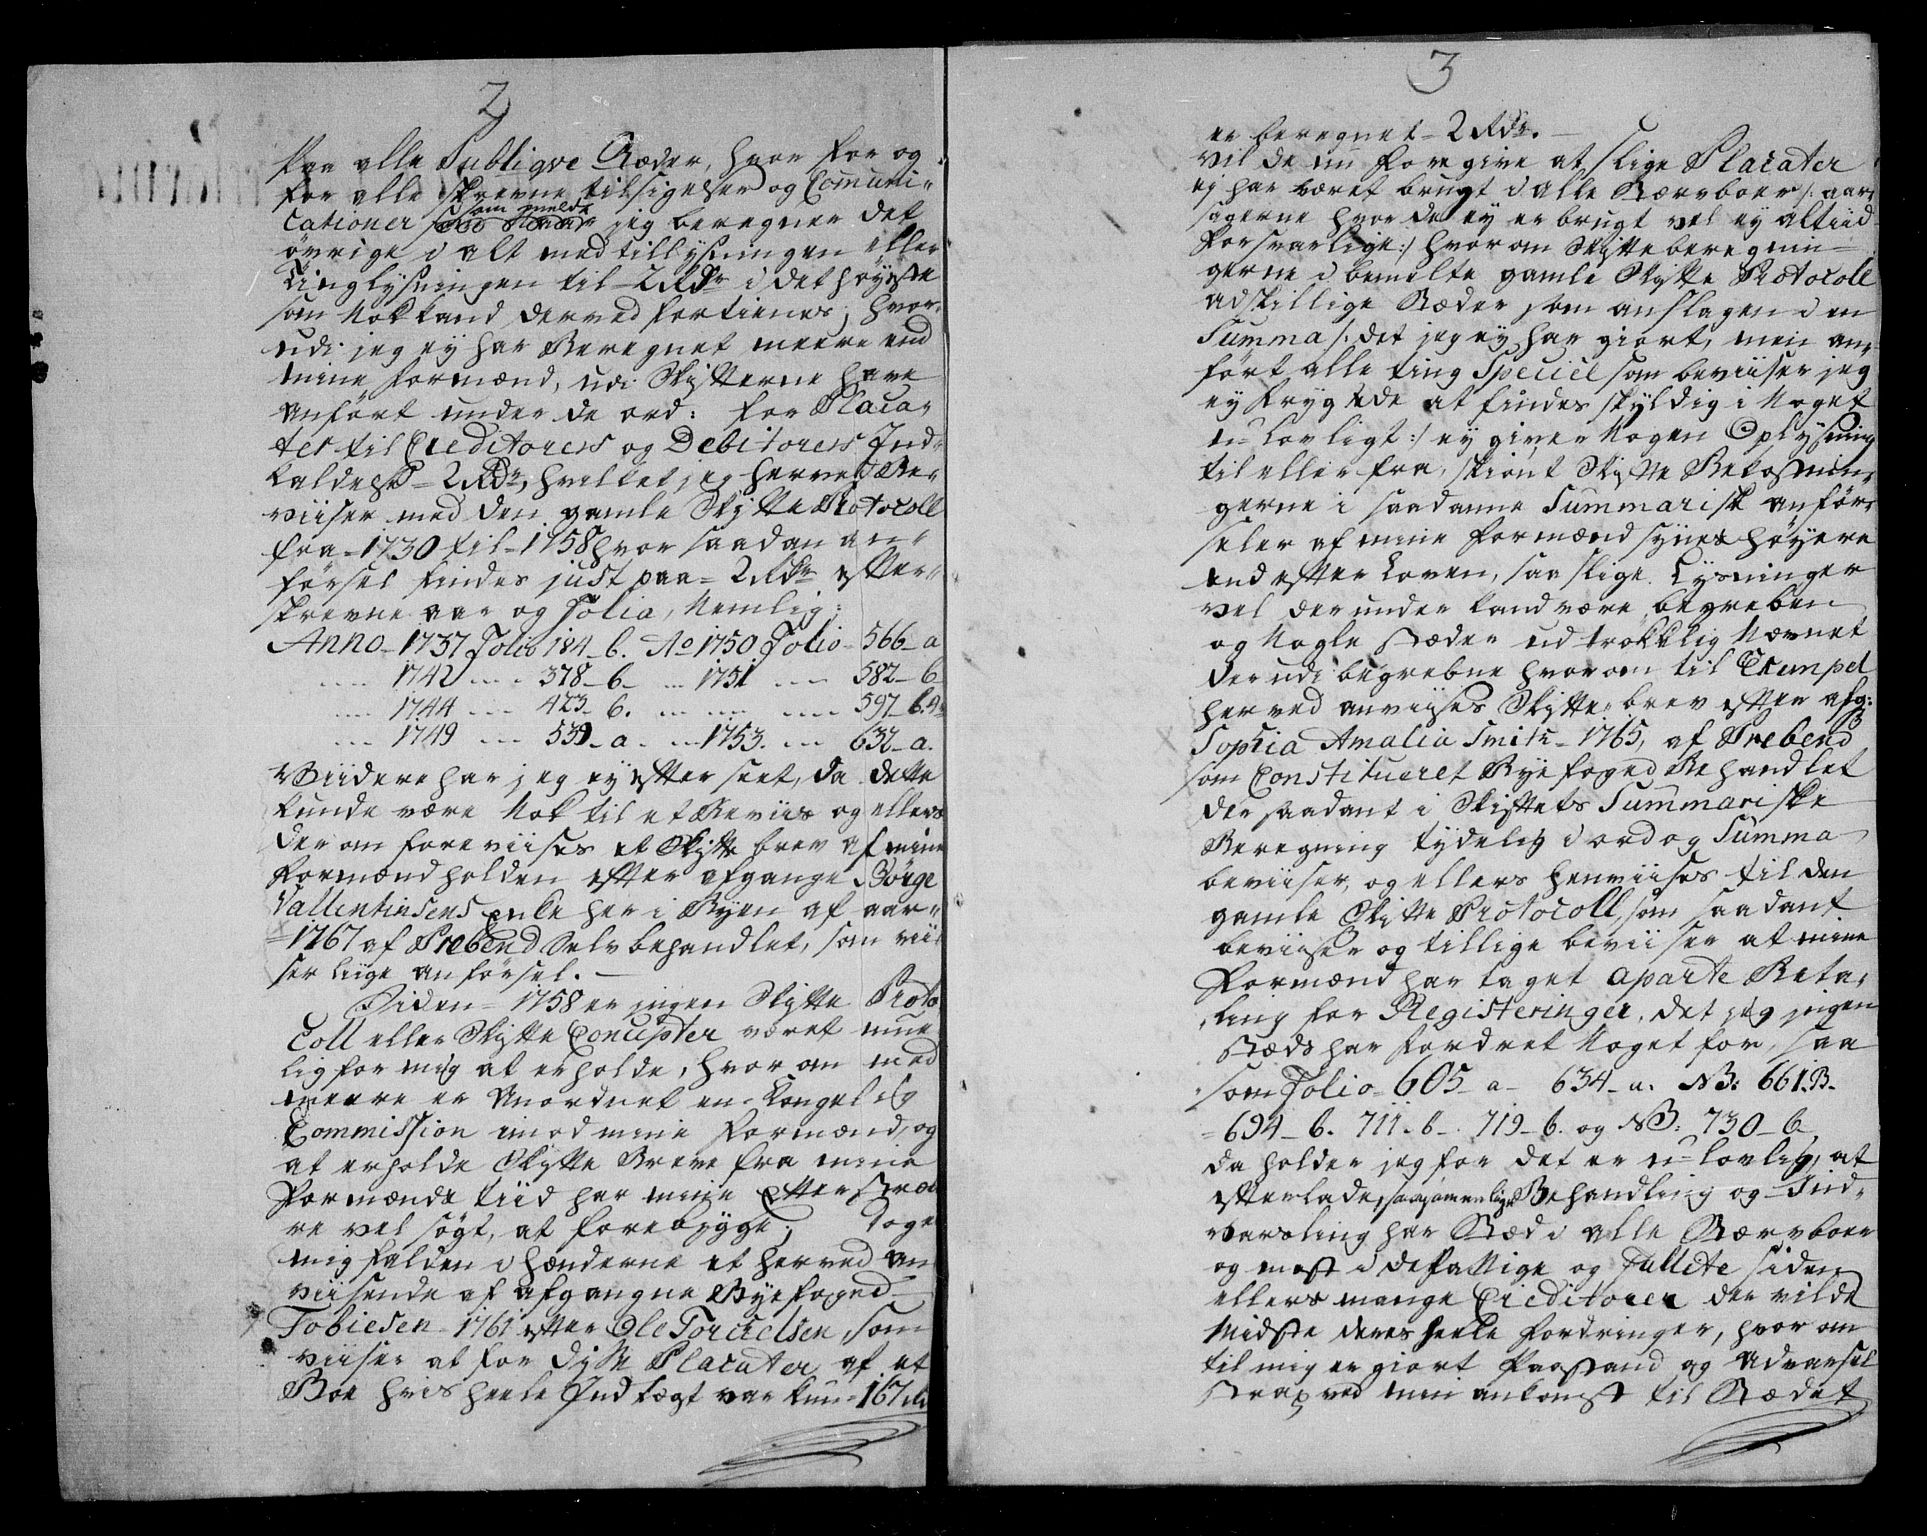 2
Paa alle Publiqve Stæder, hvor for og
for alle skrevne tilsigelser og Comuni-
cationer som melde jeg beregner det
övrige i alt med tillysningen eller
Tinglysningen til 2 Rdr i det höyste
som Nok kand derved fortienes; hvor-
udi jeg ey har Beregnet meere end
mine formænd, udi Skifterne have
anfört under de ord: for Placa-
ter til Creditorers og Debitorers Ind-
kaldelse 2 Rdr, hvilket jeg herved Be-
viiser med den gamle Skifte Protocoll
fra 1730 til 1758 hvor saadan an-
försel findes just paa 2 Rdr efter-
skrevne aar og Folia, Nemlig:
Anno 1737 Folio 184-b. Ao 1750 Folio 566-a
1742 378-b 1751 582-b
1744 423-b. 597-b.
1749 539-a. 1753. 632-a.
Viidere har jeg ey efterseet, da dette
kunde være Nok til et Beviis og ellers
derom foreviises et Skifte brev af mine
formænd holden efter afgangne Börge
Vallentinsens Enke her i Byen af aar
1767 af Prebend Selv behandlet, som vii-
ser liige anförsel.
Siden 1758 er ingen Skifte Proto
Coll eller Skifte Concepter været mue-
lig for mig at erholde, hvorom med
meere er Anordnet en Kongelig
Commission imod mine formænd, og
at erholde Skifte Breve fra mine
Formænds tiid har mine Efterstræ
re vel sögt, at forebygge; dog er
mig falden i hænderne et herved an
viisende af afgangne Byefoged
Tobiesen 1761 efter Ole Torckelsen, som
viiser at for disse Placater af et
Boe hvis heele Indtægt var kun 167 rd
3
er beregnet 2 Rdr.
vil de nu foregive at slige Placater
ej har været brugt i alle Stervboer /: aar-
sagerne hvor de ey er brugt vel ey altiid
forsvarlige :/ hvorom Skifte beregnin-
gerne i bemelte gamle Skifte Protocoll
adskillige Stæder som anslagen i en
Summa /: det jeg ey har giort, men an-
fört alle ting Speciel som beviiser jeg
ey frygtede at findes skyldig i Noget
u-lovligt :/ ey giver Nogen Oplysning
til eller fra, skiönt Skifte Bekostnin-
gerne i saadanne Summarisk anför-
seler af mine formænd synes höyere
end efter Loven, saa slige Lysninger
vel derunder kand være begreben
og Nogle stæder udtrökklig Nævnet
derudi begrebne hvorom til Exempel
herved anviises Skifte-brev efter afg:
Sophia Amalia Smith 1765, af Prebend
som Constitueret Byefoged Behandlet
der saadant i Skiftets Summariske
Beregning tydelig i ord og Summa
beviiser, og ellers henviises til den
gamle Skifte Protocoll, som saadant
beviiser og tillige beviiser at mine
Formænd har taget aparte Beta-
ling for Registeringer, det jeg ingen
stæds har fordret Noget for, saa
som Folio 605 a 634-a. NB: 661.B.
694-b. 711-b. 719-b. og NB: 730-b
da holder jeg for det er u-lovlig, at
efterlade, saa sammenlign Behandling og Ind-
varsling har Stæd i alle Stærvboer
og mest i de fattige og Fallite siden
ellers mange Creditorer der vilde
Midste deres heele fordringer, hvorom
til mig er giort Paastand og Advarsel
strax ved min ankomst til Stædet